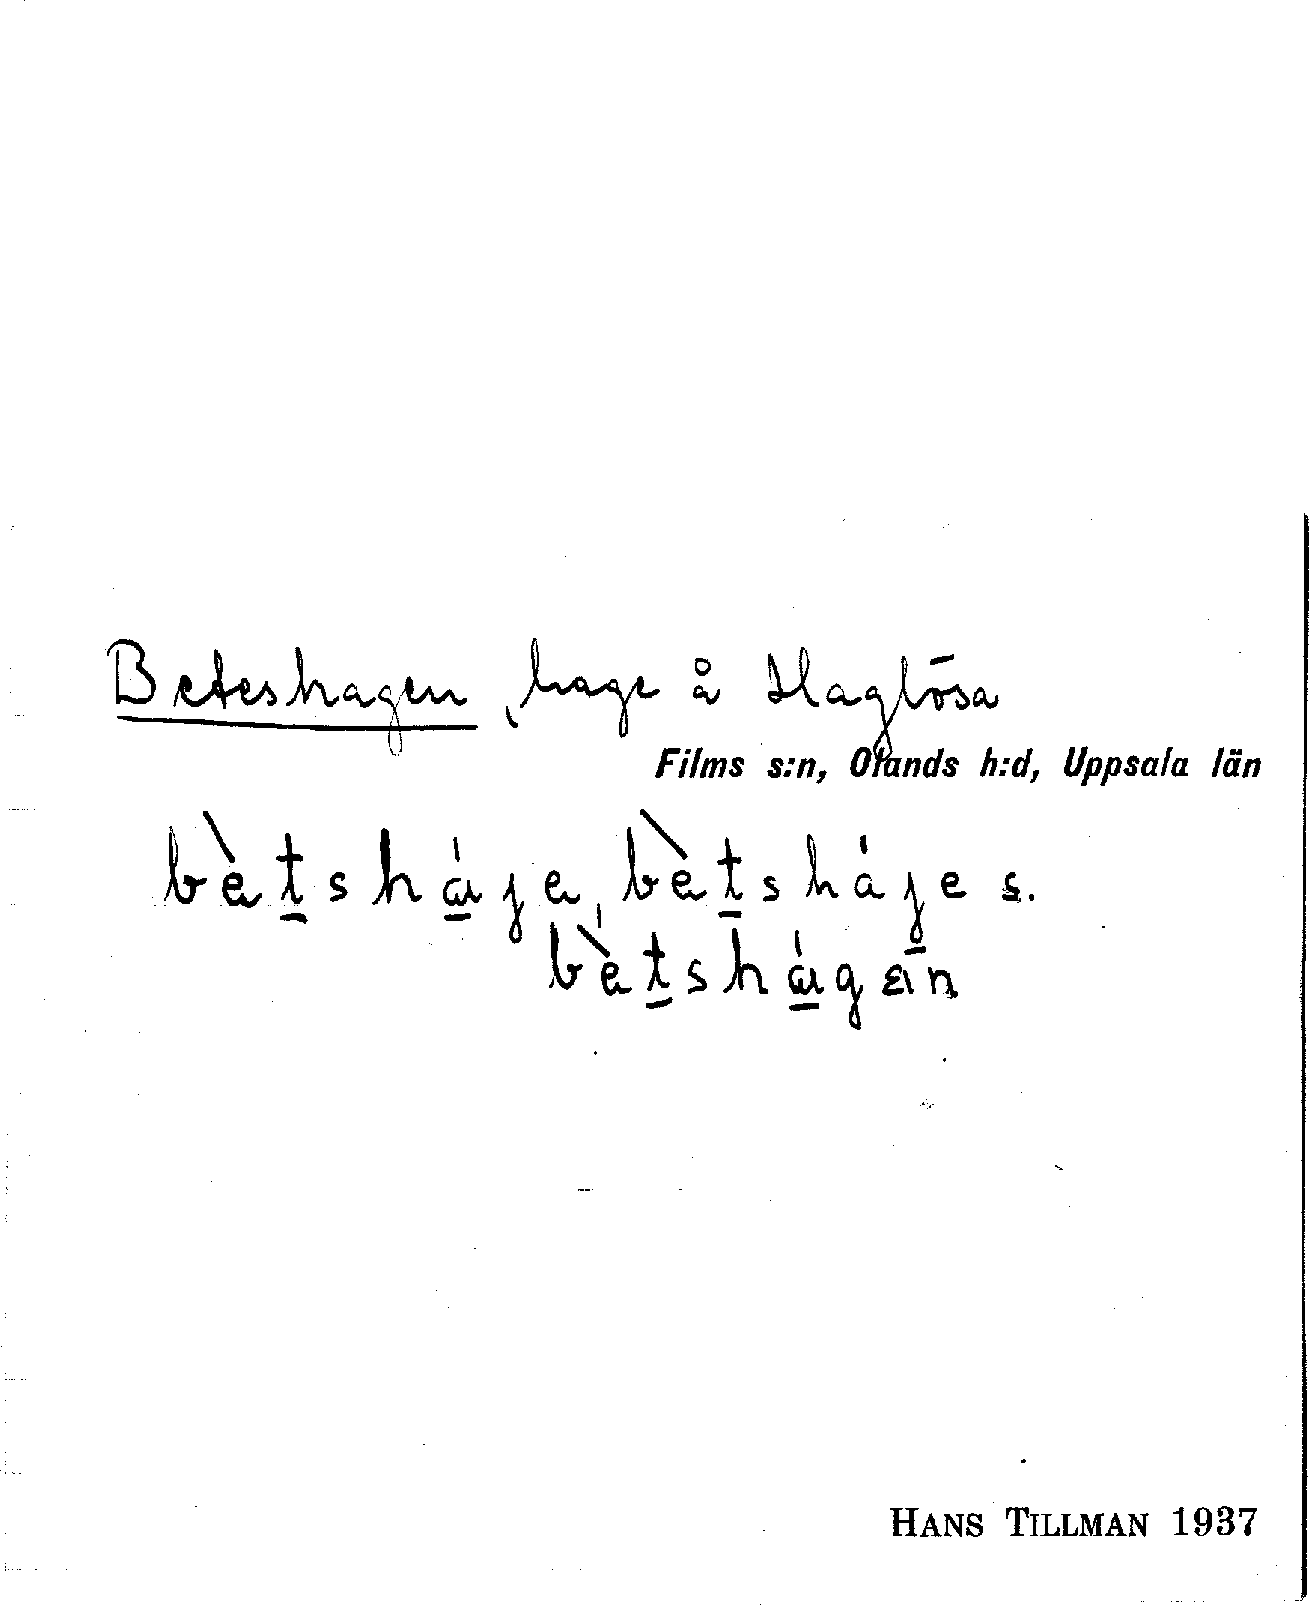 Beteshagen, hage å Haglösa
Films s:n, Olands h:d, Uppsala län
bètshája, bètsháje s.
bètshágen
HANS TILLMAN 1937